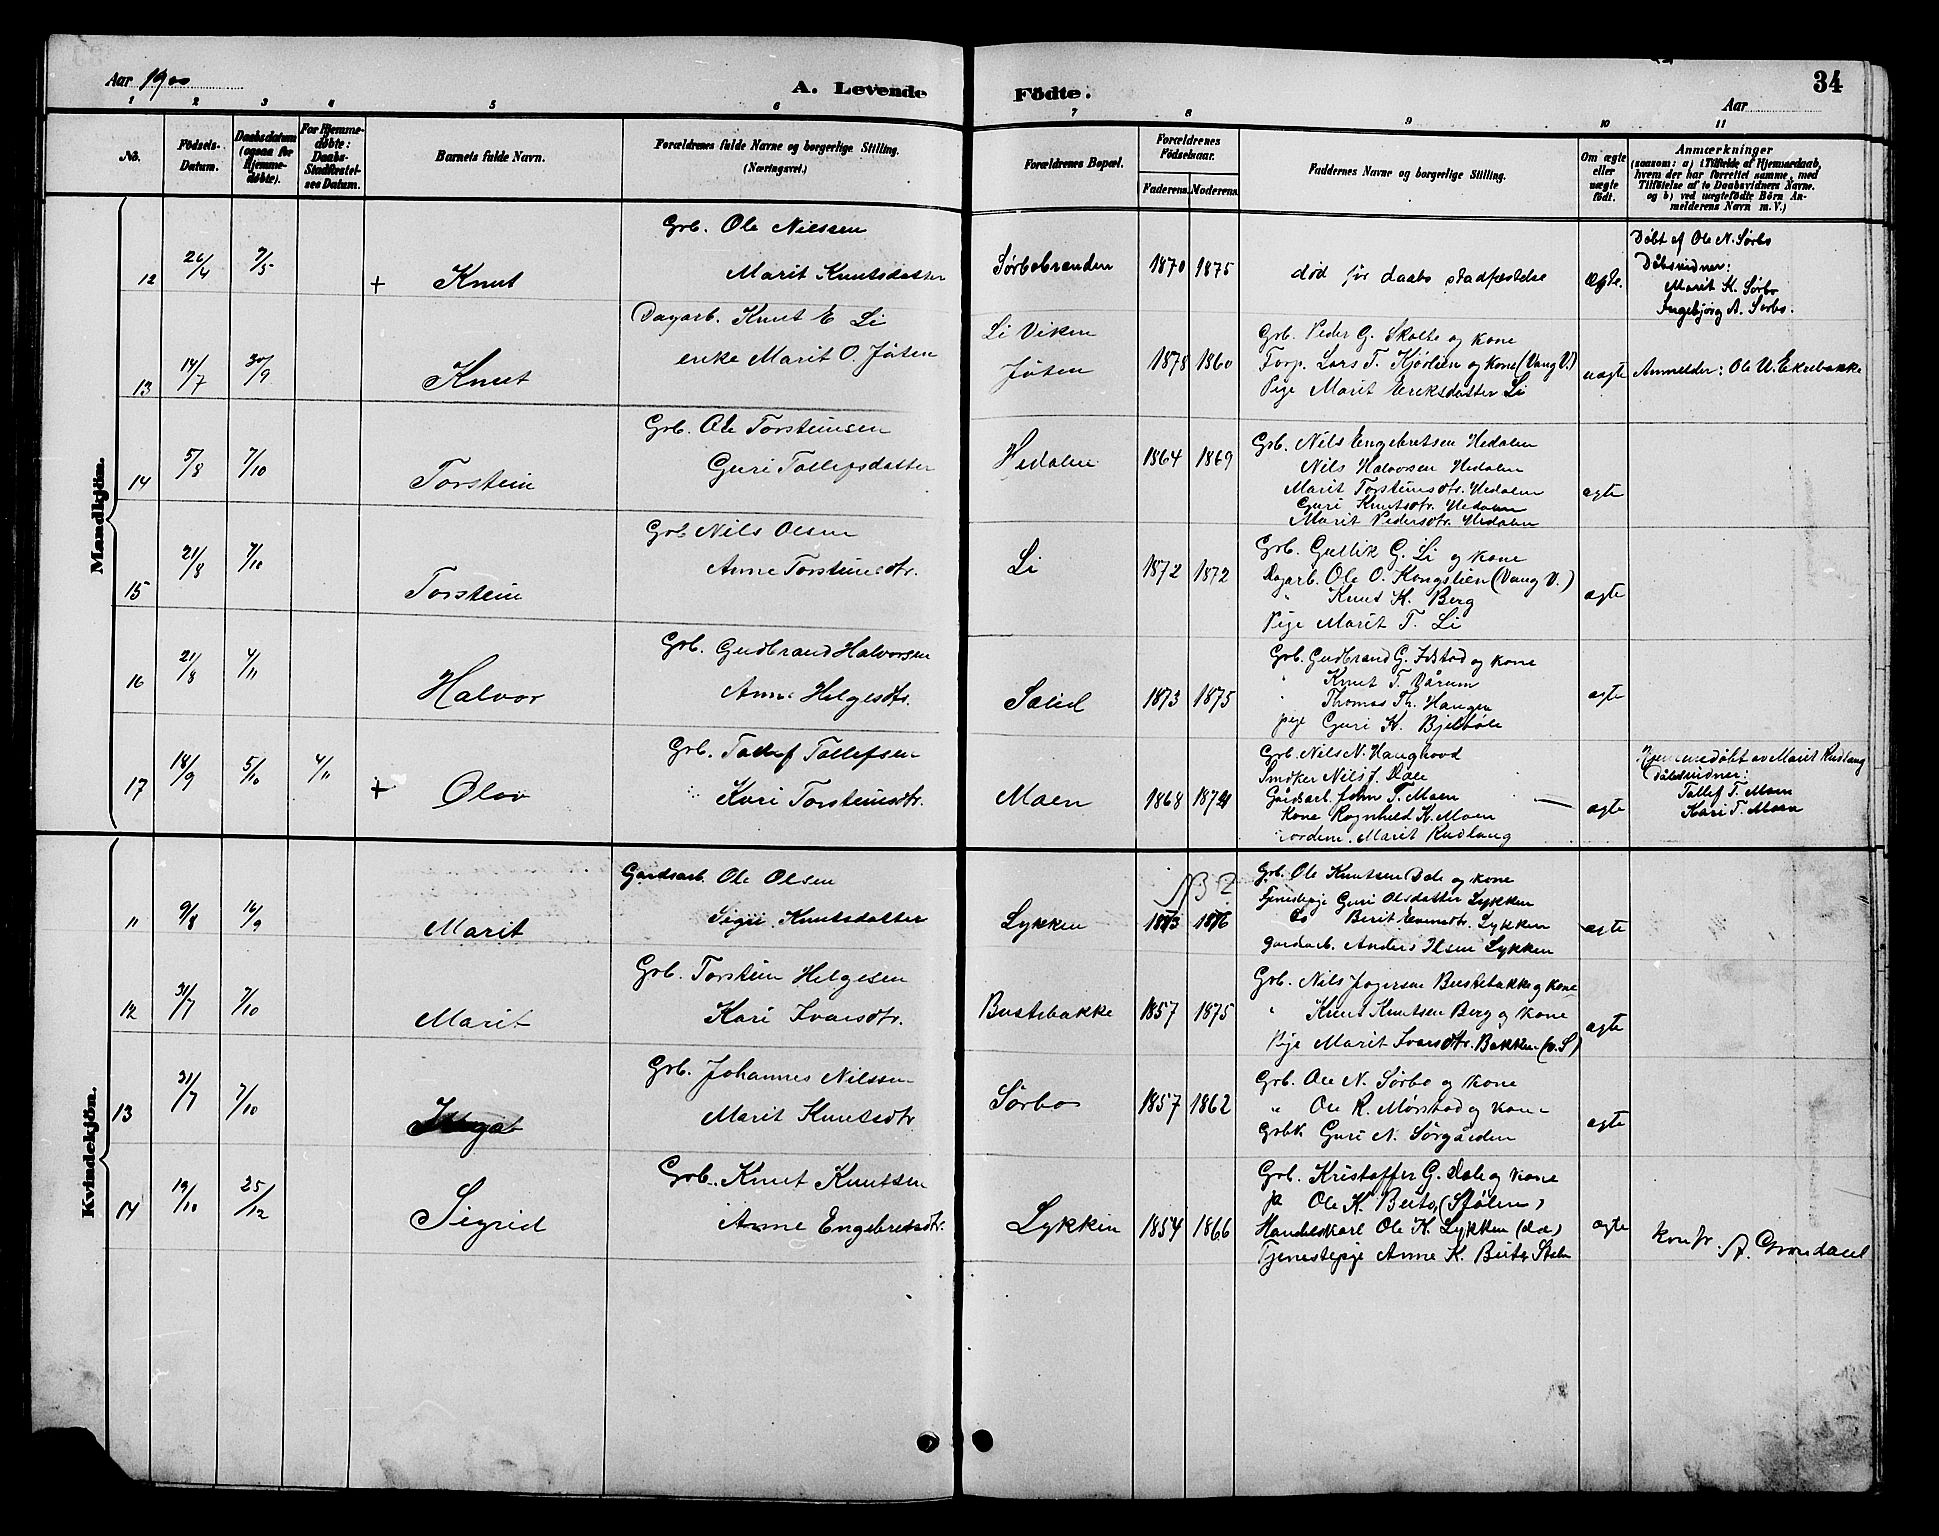 Aar 1900
A. Levende Födte.
34
Aar
1 2 3 4 5 6 7 8 9 10 11
No.
Födsels-Datum.
Daabsdatum (ogsaa for Hjemme-døbte).
For Hjemme-døbte: Daabs-Stadfæstelses Datum.
Barnets fulde Navn.
Forældrenes fulde Navne og borgerlige Stilling. (Næringsvei.)
Forældrenes Bopæl.
Forældrenes Födselsaar.
Faderens. Moderens.
Faddernes Navne og borgerlige Stilling.
Om ægte eller uægte födt.
Anmærkninger (saasom: a) i Tilfælde af Hjemmedaab, hvem der har forrettet samme, med Tilföielse af to Daabsvidners Navne. og b) ved uægtefödte Börn Anmelderens Navn m. V.)
Mandkjön.
12 26/4 7/5 + Knut
Grb. Ole Nilssen
Marit Knutsdatter
Sørbobraaden 1870 1875
død før daabs stadfæstelse
ægte.
Døbt af Ole N. Sørbo
Dåbsvidner:
Marit K. Sørbo
Ingebjørg A. Sørbo.
13 14/7 30/9 Knut
Dagarb. Knut E Li
enke Marit O. Jøten
Li Viken
Jøten 1878 1860
Grb. Peder G. Skolte og kone
Forp. Lars T. Kjørlien og kone (Vang V.)
Pige Marit Eriksdatter Li
uægte
Anmelder: Ole U. Ekrebakke
14 5/8 7/10 Torstein
Grb. Ole Torsteinsen
Guri Tollefsdatter
Hedalen 1864 1869
Grb. Nils Engebretsen Hedalen
Nils Halvorsen Hedalen
Marit Torsteinsdtr. Hedalen
Guri Knutsdtr. Hedalen
Marit Pedersdtr. Hedalen
ægte
15 21/8 7/10 Torstein
Grb Nils Olsen
Anne Torsteinsdtr.
Li 1872 1872
Grb. Gullik G. Li og kone
Dagarb. Ole O. Kongslien (Vang V.)
" Knut K. Berg
Pige Marit T. Li
ægte
16 21/8 4/11 Halvor
Grb. Gudbrand Halvorsen
Anne Helgesdtr.
Sælid 1873 1875
Grb. Gudbrand G. Ildstad og kone
" Knut T. Vårum
" Thomas Th. Haugen
pige Guri K. Bjelbøle
ægte
17 18/9 5/10 4/11 + Olav
Grb. Tollef Tollefsen
Kari Torsteinsdtr.
Moen 1868 1874
Grb Nils N. Haughovd
Smoker Nils J. Dale
Gårdsarb. John T. Moen
Kone Ragnhild K. Moen
Jordem. Marit Rudlang
ægte
Hjemmedøbt av Marit Rudlang
Dåbsvidner:
Tollef T. Moen
Kari T. Moen
Kvindekjön.
11 9/8 16/9 Marit
Gardsarb. Ole Olsen
Sigri Knutsdatter
Lykken NB ? 1873 1876
Grb. Ole Knutsen Dale og kone
Tjenestepige Guri Olsdatter Lykken
Do Berit Evensdtr. Lykken
Gardarb. Anders Ilsen Lykken
ægte
12 31/7 7/10 Marit
Grb. Torstein Helgesen
Kari Ivarsdtr.
Bustebakke 1857 1875
Grb. Nils Jogersen Bustebakke og kone
" Knut Knutsen Berg og kone
Pige Marit Ivarsdtr. Bakken (v. S)
ægte
13 31/7 7/10
Grb. Johannes Nilssen
Marit Knutsdtr.
Sørbo 1857 1862
Grb. Ole N. Sørbo og kone
" Ole R. Mørstad og kone
Grbk. Guri N. Sørgården
ægte
14 19/10 25/12 Sigrid
Grb. Knut Knutsen
Anne Engebretsdtr.
Lykken 1854 1866
Grb. Kristoffer G. Dale og kone
pa Ole K. Beito (Stølen)
Handelskarl Ole K. Lykken (do)
Tjenestepige Anne K. Beito Stølen
ægte
konfr. A. Grøndahl